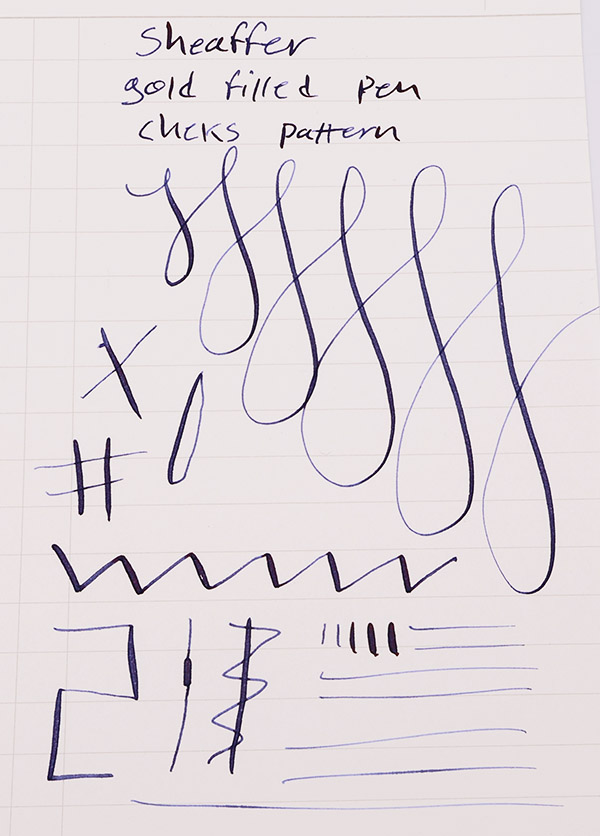 Sheaffer
gold filled pen
chcks pattern